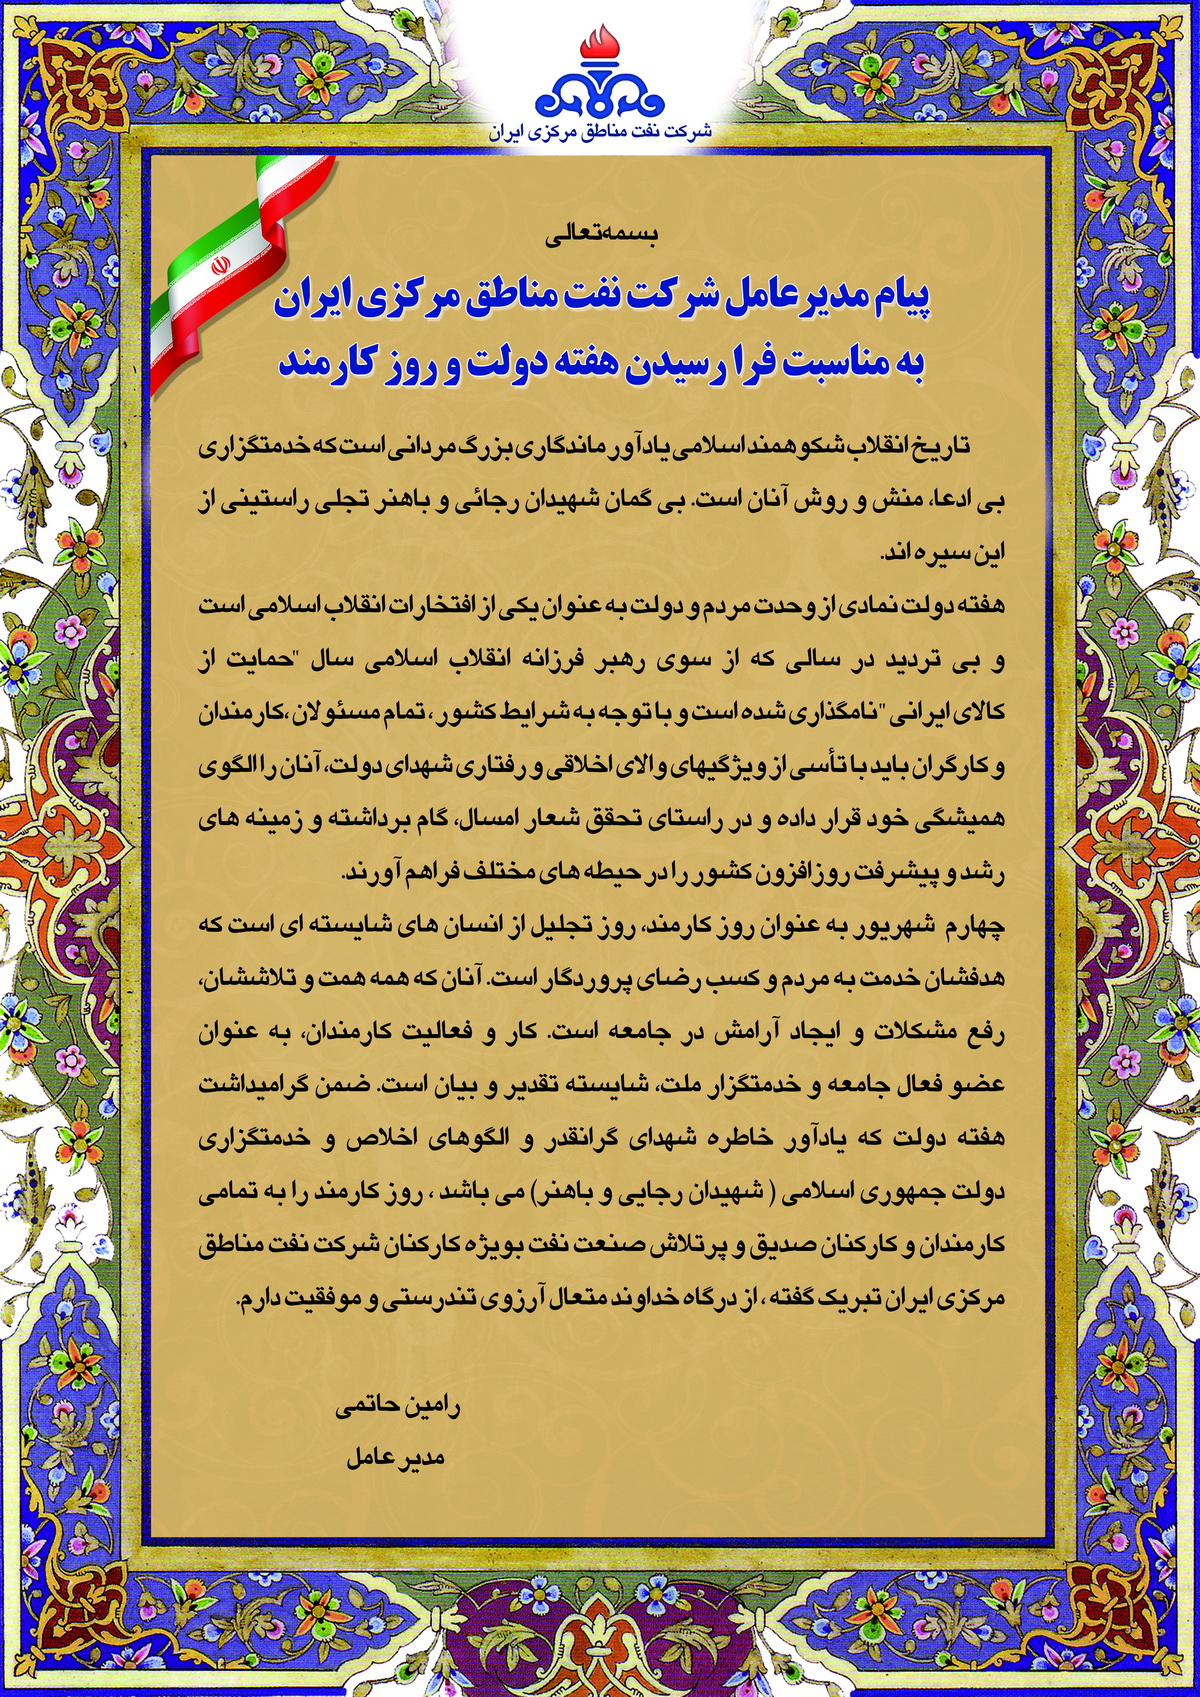 شرکت نفت مناطق مرکزی ایران
بسمه‌تعالی
پیام مدیرعامل شرکت نفت مناطق مرکزی ایران
به مناسبت فرا رسیدن هفته دولت و روز کارمند
تاریخ انقلاب شکوهمند اسلامی یادآور ماندگاری بزرگ مردانی است که خدمتگزاری
بی ادعا، منش و روش آنان است. بی گمان شهیدان رجائی و باهنر تجلی راستینی از
این سیره اند.
هفته دولت نمادی از وحدت مردم و دولت به عنوان یکی از افتخارات انقلاب اسلامی است
و بی تردید در سالی که از سوی رهبر فرزانه انقلاب اسلامی سال "حمایت از
کالای ایرانی "نامگذاری شده است و با توجه به شرایط کشور ، تمام مسئولان ،کارمندان
و کارگران باید با تأسی از ویژگیهای والای اخلاقی و رفتاری شهدای دولت، آنان را الگوی
همیشگی خود قرار داده و در راستای تحقق شعار امسال، گام برداشته و زمینه های
رشد و پیشرفت روزافزون کشور را در حیطه های مختلف فراهم آورند.
چهارم شهریور به عنوان روز کارمند، روز تجلیل از انسان های شایسته ای است که
هدفشان خدمت به مردم و کسب رضای پروردگار است. آنان که همه همت و تلاششان،
رفع مشکلات و ایجاد آرامش در جامعه است. کار و فعالیت کارمندان، به عنوان
عضو فعال جامعه و خدمتگزار ملت، شایسته تقدیر و بیان است. ضمن گرامیداشت
هفته دولت که یادآور خاطره شهدای گرانقدر و الگوهای اخلاص و خدمتگزاری
دولت جمهوری اسلامی ( شهیدان رجایی و باهنر) می باشد ، روز کارمند را به تمامی
کارمندان و کارکنان صدیق و پرتلاش صنعت نفت بویژه کارکنان شرکت نفت مناطق
مرکزی ایران تبریک گفته ، از درگاه خداوند متعال آرزوی تندرستی و موفقیت دارم.
رامین حاتمی
مدیر عامل